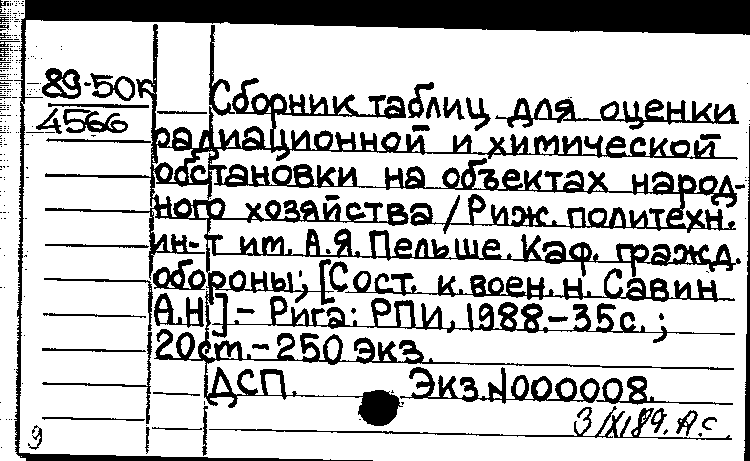 89-50к
4566
Сборник таблиц для оценки
радиационной и химической
обстановки на объектах народ-
ного хозяйства / Риж. политехн.
ин-т им. А.Я. Пельше. Каф. гражд.
обороны; [Сост. к. воен. н. Савин
А.Н.]. - Рига: РПИ, 1988. - 35с. ;
20 см. - 250 экз.
ДСП. Экз. N000008.
3/XI 89. А.С.
9